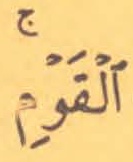 ٱلْقَوْمِۚ